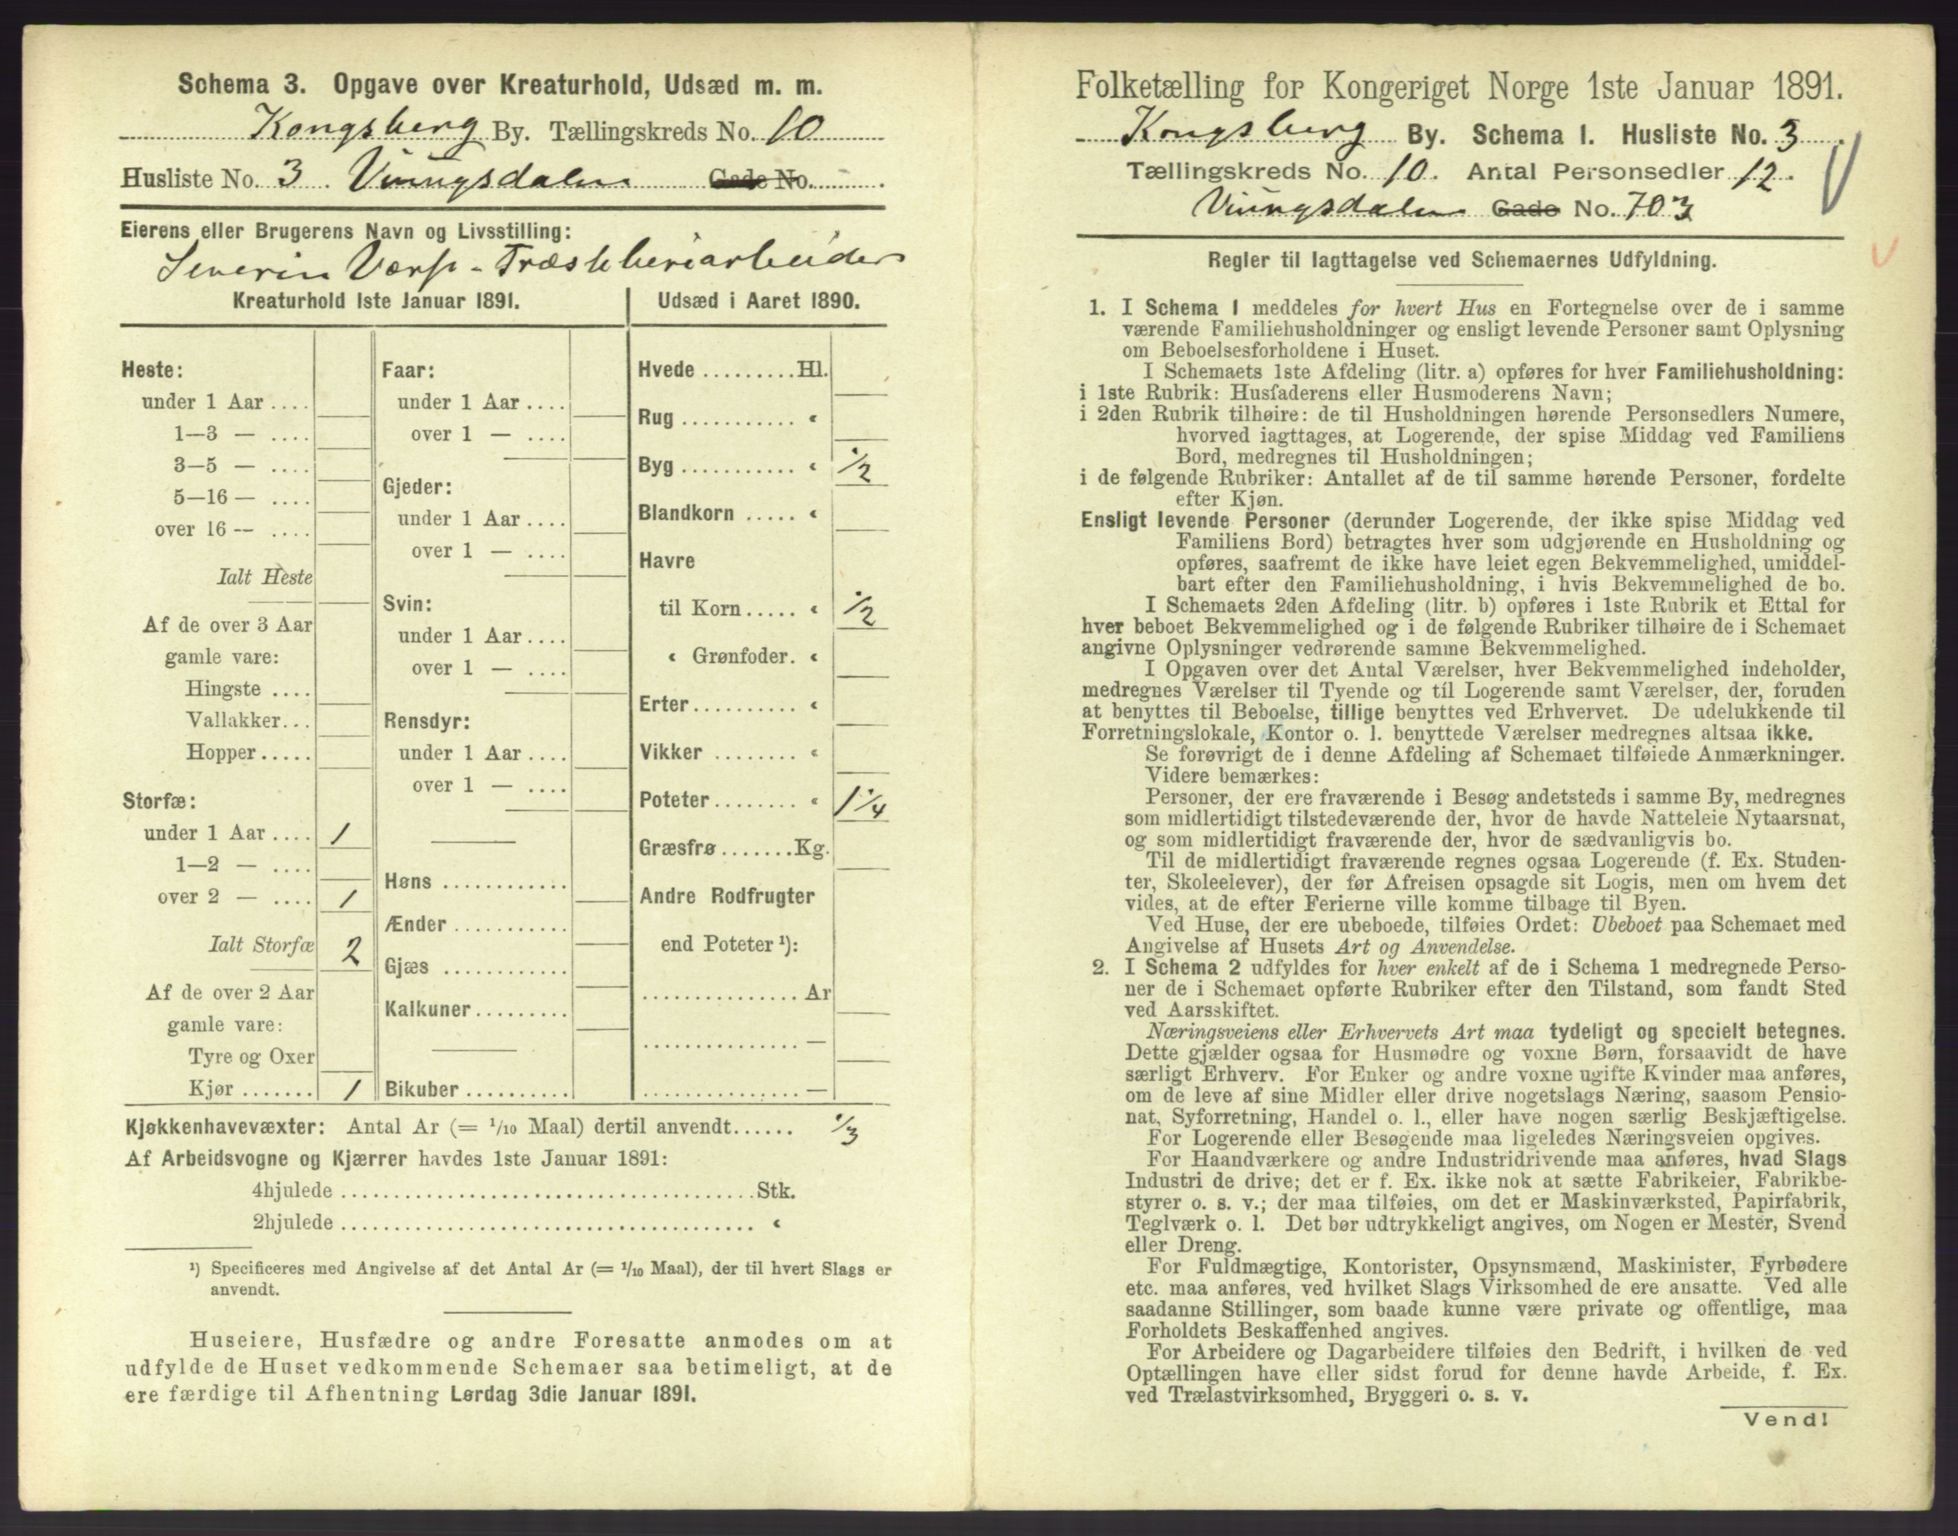 Schema 3. Opgave over Kreaturhold, Udsæd m. m.
Kongsberg By. Tællingskreds No. 10
Husliste No. 3 Gade No.
Eierens eller Brugerens Navn og Livsstilling:
Severin
Kreaturhold 1ste Januar 1891.
Heste:
under 1 Aar ....
1—3 — ....
3—5 — ....
5—16 — ....
over 16 — ....
Ialt Heste
Af de over 3 Aar
gamle vare:
Hingste ....
Vallakker...
Hopper.....
Storfæ:
under 1 Aar .... 1
1—2 — ....
over 2 — .... 1
Ialt Storfæ 2
Af de over 2 Aar
gamle vare:
Tyre og Oxer
Kjør ....... 1
Faar:
under 1 Aar ....
over 1 — ....
Gjeder:
under 1 Aar ....
over 1 — ....
Svin:
under 1 Aar ....
over 1 — ....
Rensdyr:
under 1 Aar ....
over 1 — ....
Høns ............
Ænder ...........
Gjæs ............
Kalkuner.........
Bikuber ..........
Udsæd i Aaret 1890.
Hvede .........Hl.
Rug ........... «
Byg ........... « 1/2
Blandkorn ..... «
Havre
til Korn ..... « 1/2
« Grønfoder. «
Erter.......... «
Vikker ........ «
Poteter........ « 1 1/4
Græsfrø .......Kg.
Andre Rodfrugter
end Poteter ¹):
............... Ar
............... —
............... —
Kjøkkenhavevæxter: Antal Ar (= 1/10 Maal) dertil anvendt...... 1/3
Af Arbeidsvogne og Kjærrer havdes 1ste Januar 1891:
4hjulede ........................................Stk.
2hjulede ........................................ «
¹) Specificeres med Angivelse af det Antal Ar (= 1/10 Maal), der til hvert Slags er
anvendt.
Huseiere, Husfædre og andre Foresatte anmodes om at
udfylde de Huset vedkommende Schemaer saa betimeligt, at de
ere færdige til Afhentning Lørdag 3die Januar 1891.
Folketælling for Kongeriget Norge 1ste Januar 1891.
Kongsberg By. Schema 1. Husliste No. 3
Tællingskreds No. 10. Antal Personsedler 12.
Gade No. 703
Regler til Iagttagelse ved Schemaernes Udfyldning.
1. I Schema 1 meddeles for hvert Hus en Fortegnelse over de i samme
værende Familiehusholdninger og ensligt levende Personer samt Oplysning
om Beboelsesforholdene i Huset.
I Schemaets 1ste Afdeling (litr. a) opføres for hver Familiehusholdning:
i 1ste Rubrik: Husfaderens eller Husmoderens Navn;
i 2den Rubrik tilhøire: de til Husholdningen hørende Personsedlers Numere,
hvorved iagttages, at Logerende, der spise Middag ved Familiens
Bord, medregnes til Husholdningen;
i de følgende Rubriker: Antallet af de til samme hørende Personer, fordelte
efter Kjøn.
Ensligt levende Personer (derunder Logerende, der ikke spise Middag ved
Familiens Bord) betragtes hver som udgjørende en Husholdning og
opføres, saafremt de ikke have leiet egen Bekvemmelighed, umiddel-
bart efter den Familiehusholdning, i hvis Bekvemmelighed de bo.
I Schemaets 2den Afdeling (litr. b) opføres i 1ste Rubrik et Ettal for
hver beboet Bekvemmelighed og i de følgende Rubriker tilhøire de i Schemaet
angivne Oplysninger vedrørende samme Bekvemmelighed.
I Opgaven over det Antal Værelser, hver Bekvemmelighed indeholder,
medregnes Værelser til Tyende og til Logerende samt Værelser, der, foruden
at benyttes til Beboelse, tillige benyttes ved Erhvervet. De udelukkende til
Forretningslokale, Kontor o. l. benyttede Værelser medregnes altsaa ikke.
Se forøvrigt de i denne Afdeling af Schemaet tilføiede Anmærkninger.
Videre bemærkes:
Personer, der ere fraværende i Besøg andetsteds i samme By, medregnes
som midlertidigt tilstedeværende der, hvor de havde Natteleie Nytaarsnat,
og som midlertidigt fraværende der, hvor de sædvanligvis bo.
Til de midlertidigt fraværende regnes ogsaa Logerende (f. Ex. Studen-
ter, Skoleelever), der før Afreisen opsagde sit Logis, men om hvem det
vides, at de efter Ferierne ville komme tilbage til Byen.
Ved Huse, der ere ubeboede, tilføies Ordet: Ubeboet paa Schemaet med
Angivelse af Husets Art og Anvendelse.
2. I Schema 2 udfyldes for hver enkelt af de i Schema 1 medregnede Perso-
ner de i Schemaet opførte Rubriker efter den Tilstand, som fandt Sted
ved Aarsskiftet.
Næringsveiens eller Erhvervets Art maa tydeligt og specielt betegnes.
Dette gjælder ogsaa for Husmødre og voxne Børn, forsaavidt de have
særligt Erhverv. For Enker og andre voxne ugifte Kvinder maa anføres,
om de leve af sine Midler eller drive nogetslags Næring, saasom Pensio-
nat, Syforretning, Handel o. l., eller have nogen særlig Beskjæftigelse.
For Logerende eller Besøgende maa ligeledes Næringsveien opgives.
For Haandværkere og andre Industridrivende maa anføres, hvad Slags
Industri de drive; det er f. Ex. ikke nok at sætte Fabrikeier, Fabrikbe-
styrer o. s. v.; der maa tilføies, om det er Maskinværksted, Papirfabrik,
Teglværk o. l. Det bør udtrykkeligt angives, om Nogen er Mester, Svend
eller Dreng.
For Fuldmægtige, Kontorister, Opsynsmænd, Maskinister, Fyrbødere
etc. maa anføres, ved hvilket Slags Virksomhed de ere ansatte. Ved alle
saadanne Stillinger, som baade kunne være private og offentlige, maa
Forholdets Beskaffenhed angives.
For Arbeidere og Dagarbeidere tilføies den Bedrift, i hvilken de ved
Optællingen have eller sidst forud for denne havde Arbeide, f. Ex.
ved Trælastvirksomhed, Bryggeri o. s. v.
Vend!